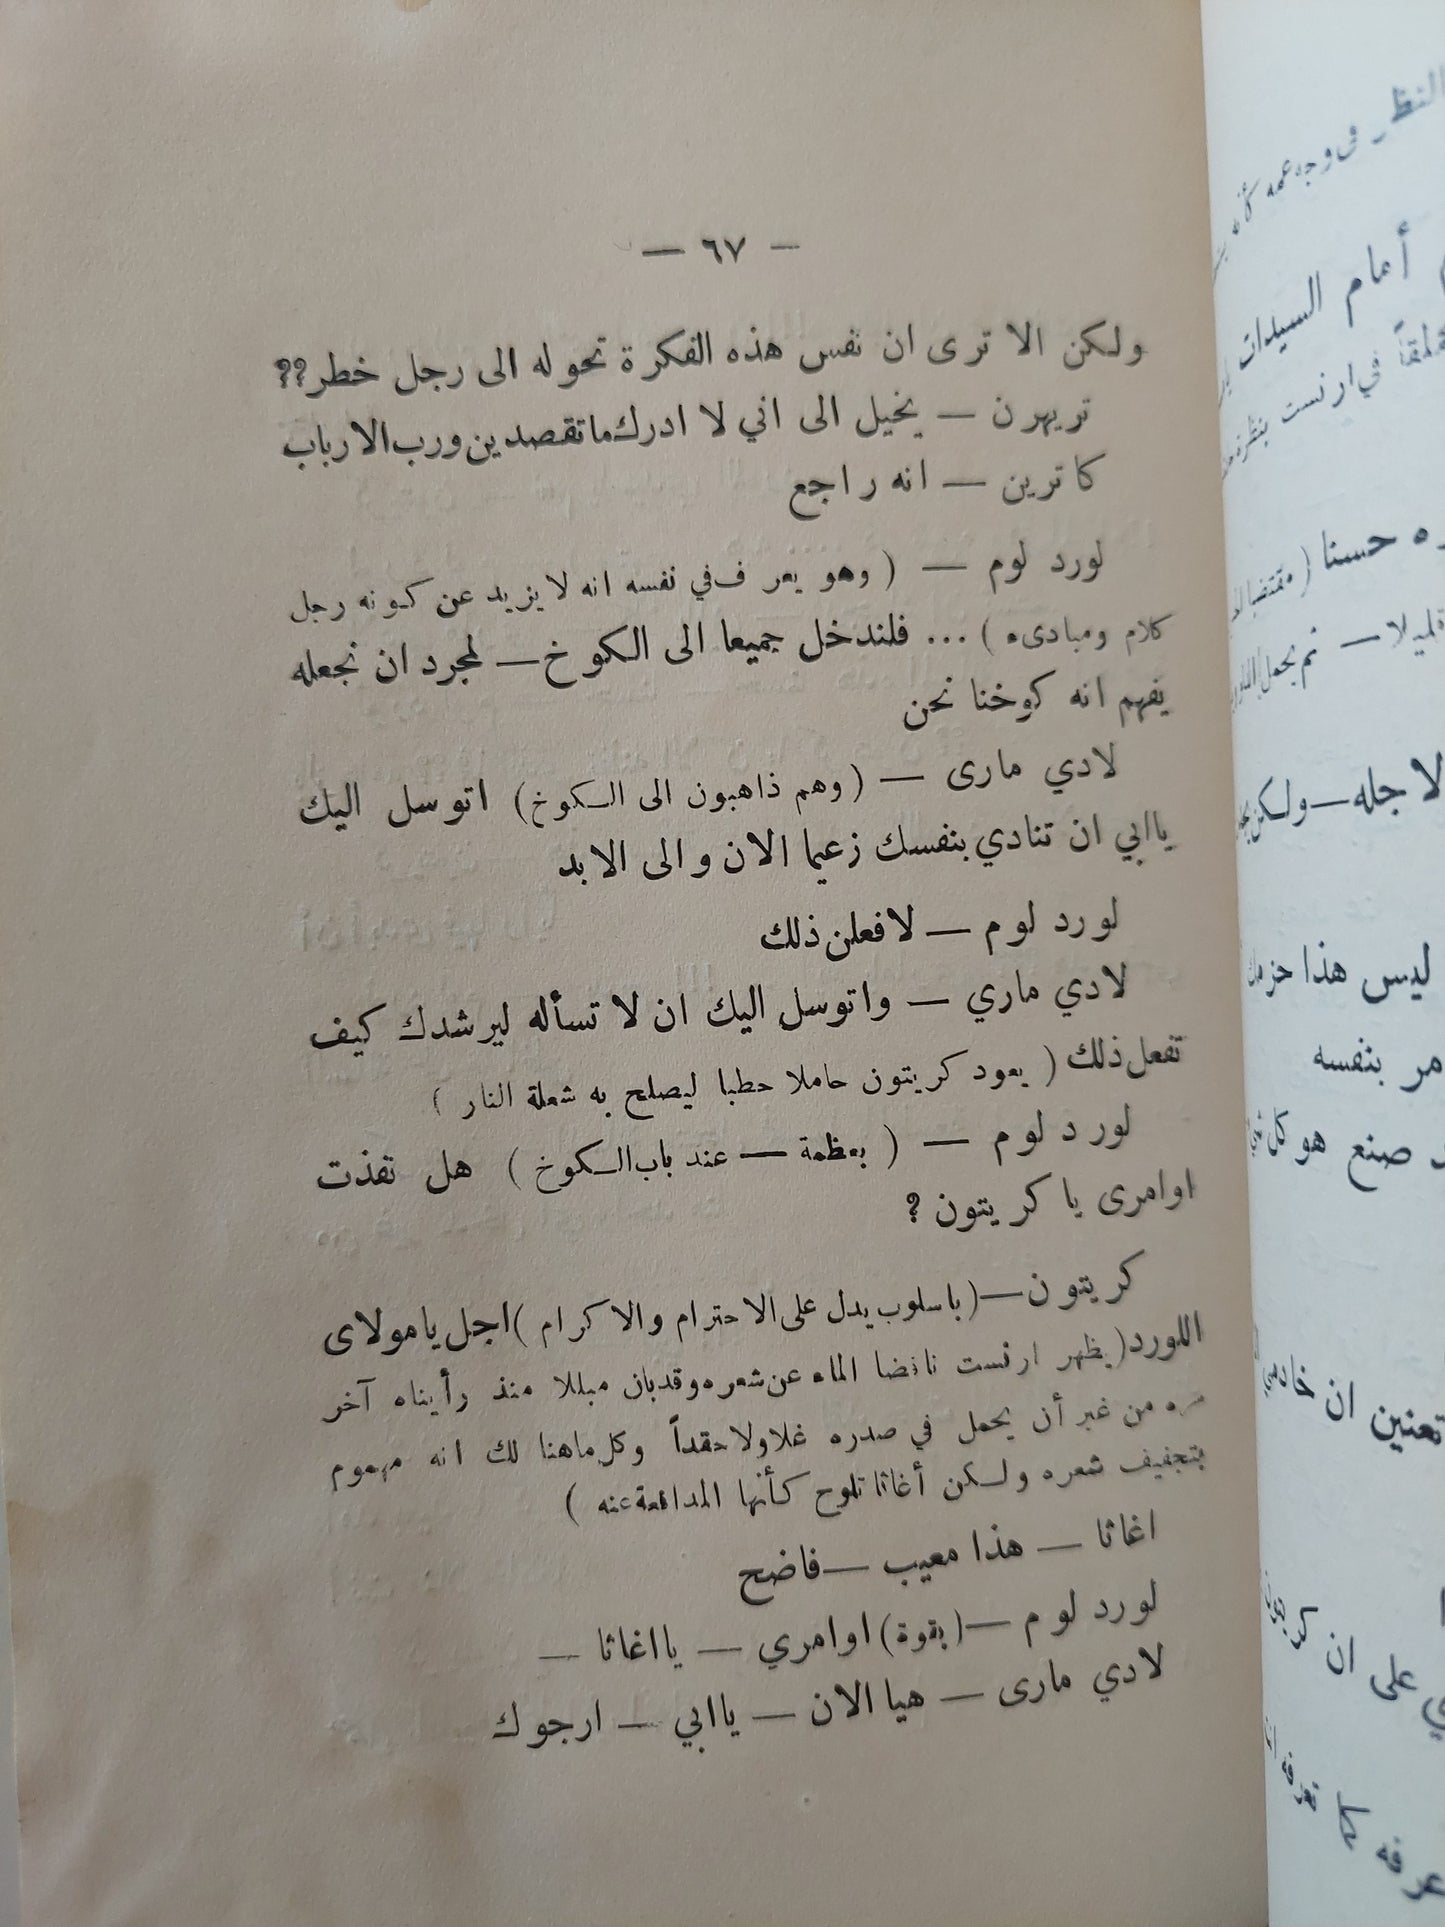 — ٦٧ —
ولكن الا ترى ان نفس هذه الفكرة تحوله الى رجل خطر??
تريهرن — يخيل الى اني لا ادرك ما تقصدين ورب الارباب
كاترين — انه راجع
لورد لوم — ( وهو يعرف في نفسه انه لا يزيد عن كونه رجل
كلام ومبادىء ) ... فلندخل جميعا الى الكوخ — لمجرد ان نجعله
يفهم انه كوخنا نحن
لادي مارى — ( وهم ذاهبون الى الكوخ ) اتوسل اليك
ياابي ان تنادي بنفسك زعيما الان والى الابد
لورد لوم — لافعلن ذلك
لادي ماري — واتوسل اليك ان لا تسأله ليرشدك كيف
تفعل ذلك ( يعود كريتون حاملا حطبا ليصلح به شعلة النار )
لورد لوم — ( بعظمة — عند باب الكوخ ) هل نفذت
اوامرى يا كريتون ?
كريتون — ( باسلوب يدل على الاحترام والاكرام ) اجل يامولاى
اللورد ( يظهر ارنست نافضا الماء عن شعره وقد بان مبللا منذ رأيناه آخر
مره من غير أن يحمل في صدره غلا ولا حقداً وكل ماهنا لك انه مهموم
بتجفيف شعره ولكن أغاثا تلوح كأنها المدافعة عنه )
اغاثا — هذا معيب — فاضح
لورد لوم — ( بقوة ) اوامري — يااغاثا —
لادي مارى — هيا الان — ياابي — ارجوك
أمام السيدات
في ارنست بنظرة
ه حسنا ( مقتضبا
قليلا — ثم يحمل
لاجله — ولكن
ليس هذا حزمك
مر بنفسه
صنع هو كل
تعنين ان خادمي
على ان